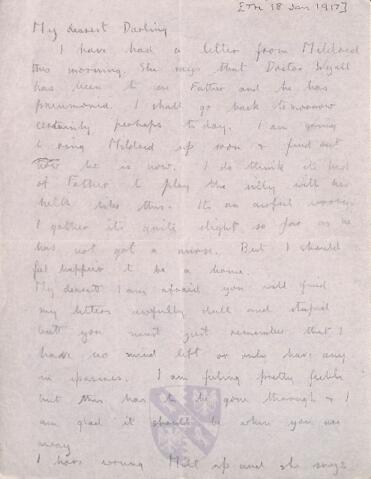 [Th 18 Jan 1917]
My dearest Darling
I have had a letter from Mildred
this morning. She says that Doctor Wyatt
has been to see Father and he has
pneumonia. I shall go back tomorrow
certainly perhaps to day. I am going
to ring Mildred up soon & find out
how he is now. I do think it's bad
of Father to play the silly with his
health like this. It's an awful worry.
I gather its quite slight so far as he
has not got a nurse. But I should
feel happier to be a home.
My dearest I am afraid you will find
my letters awfully dull and stupid
but you must just remember that I
have no mind left or only have any
in spasms. I am feeling pretty feeble
but this has to be gone through & I
am glad it should be when you are
away
I have wrung up and she says